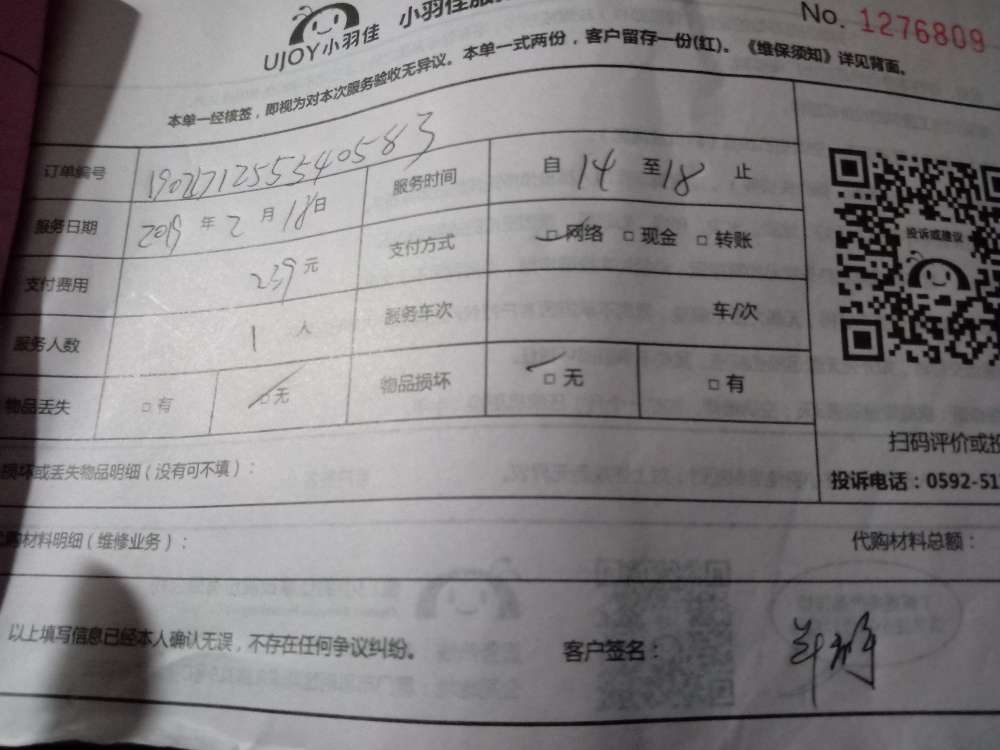 UJOY小羽佳 小羽佳服
No. 1276809
本单一经核签，即视为对本次服务验收无异议。本单一式两份，客户留存一份(红)。《维保须知》详见背面。
订单编号 1902171255540583 服务时间 自 14 至 18 止
服务日期 2019 年 2 月 18 日 支付方式 □ 网络 □ 现金 □ 转账
支付费用 239 元 服务车次 车/次
服务人数 1 人
物品丢失 □ 有 □ 无 物品损坏 □ 无 □ 有
投诉或建议
扫码评价或投
投诉电话：0592-51
损坏或丢失物品明细（没有可不填）：
代购材料明细（维修业务）： 代购材料总额：
以上填写信息已经本人确认无误，不存在任何争议纠纷。 客户签名：